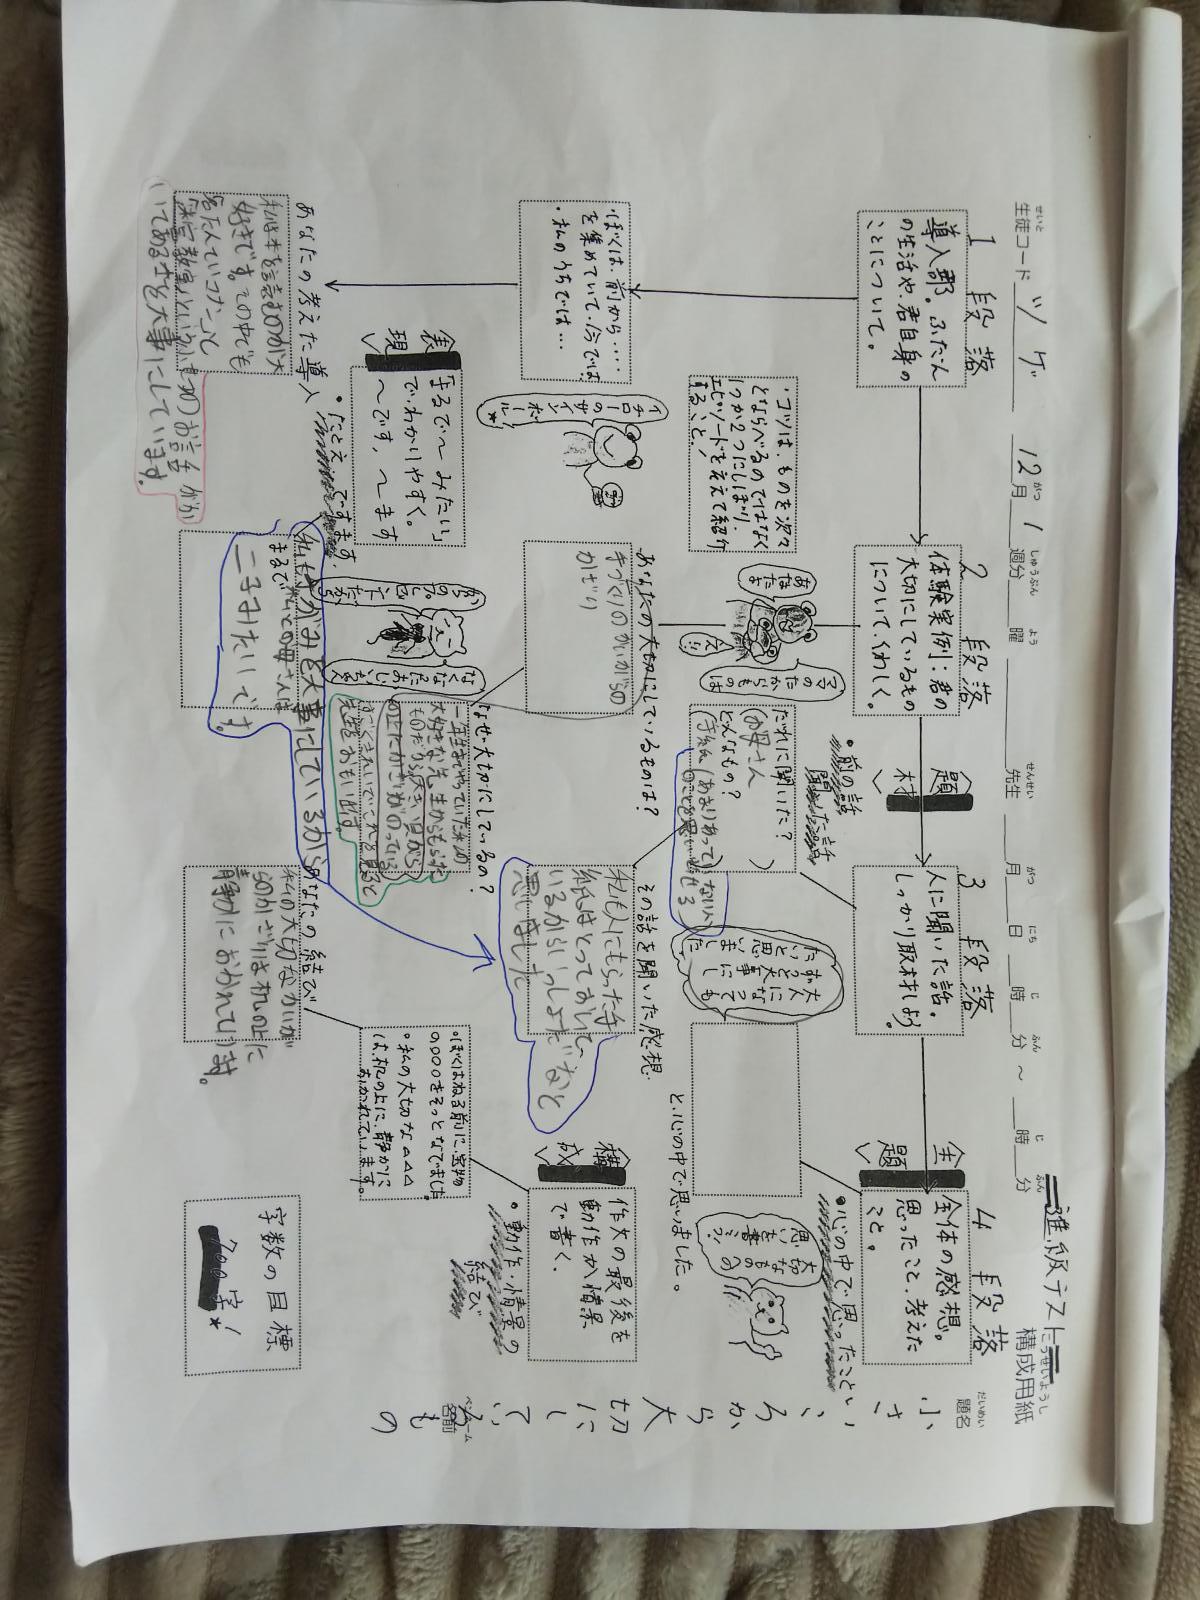 進級テスト
構成用紙
生徒コード ツゲ 12月 1週分 曜 先生 月 日 時 分 ～ 時 分
題名
小さいころから大切にしているもの
1段落
導入部。ふだん
の生活や、君自身の
ことについて。
・ぼくは、前から…
を集めていて、今では
・私のうちでは…
あなたの考えた導入
私は本を読むのが大
好きです。その中でも
いてあるを大事にしています。
・コツは、ものを次々
とならべるのではなく
1つか2つにしぼり、
エピソードを交えて紹介
すること！
イチローのサインボール★
表現
「まるで～みたい」
でわかりやすく。
～です、～ます
・たとえ
ですます
2段落
体験実例：君の
大切にしているもの
について、くわしく。
あなたの大切にしているものは？
手づくりのかいがらの
かざり
なぜ大切にしているの？
一年生までやっていた
大好きな先生からもらった
ものだから。大きい貝がら
の上にかざりがのっている
すごくきれいでこれを見ると
先生をおもい出す。
私も手がみを大事にしているから
まるで私とお母さんは
二子みたいです。
題材
・前の話
聞いた話
3段落
人に聞いた話。
しっかり取材しよう。
だれに聞いた？
（お母さん ）
どんなもの？
（手紙（あまりあっていない人
のことを思い出せる
その話を聞いた感想
私も人にもらった手
紙はとっておいて
いるからいっしょだなと
思いました
主題
4段落
全体の感想。
思ったこと、考えた
こと。
・心の中で思ったこと
大人になっても
ずっと大事にし
たいと思いまし
た
と、心の中で思いました。
大切なものへの
思いを書こう
構成
作文の最後を
動作か情景
で書く。
・動作・情景の
結び
・ぼくはねる前に、宝物
の○○○をそっとなでました。
・私の大切な△△△
は、机の上に、静かに
おかれています。
あなたの結び
私の大切なかいが
らのかざりは机の上に
静かにおかれています。
字数の目標
700字！★